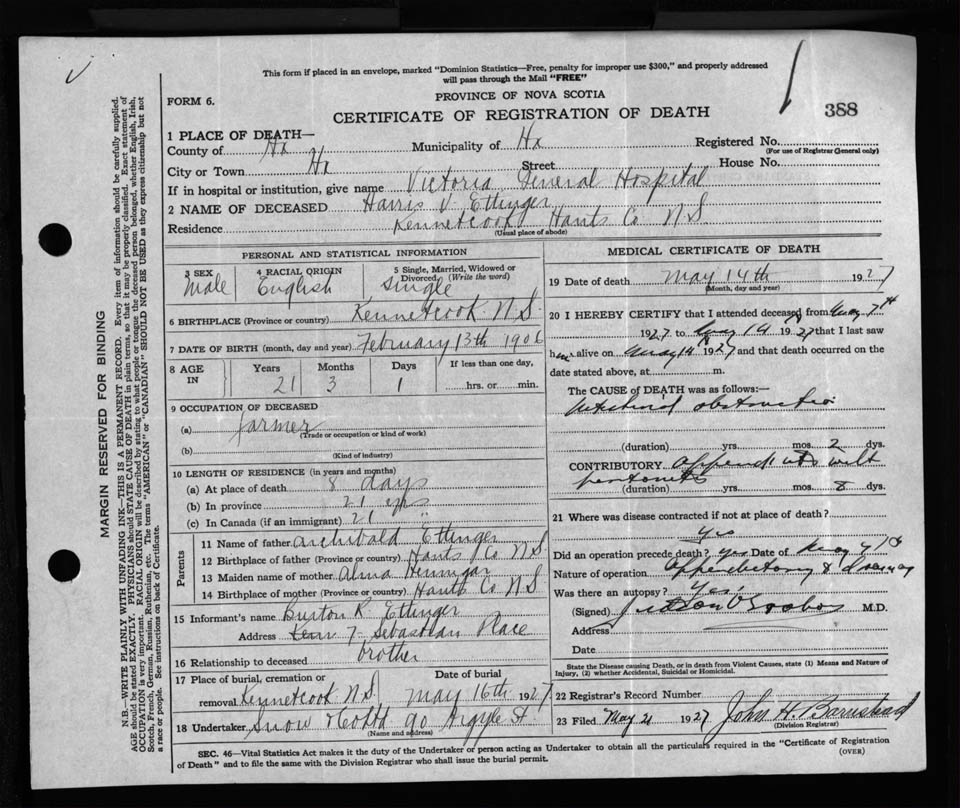 This form if placed in an envelope, marked "Dominion Statistics—Free, penalty for improper use $300," and properly addressed
will pass through the Mail "FREE"
FORM 6.
PROVINCE OF NOVA SCOTIA
388
CERTIFICATE OF REGISTRATION OF DEATH
1 PLACE OF DEATH—
County of Hx Municipality of Hx Registered No.
(For use of Registrar General only)
City or Town Hx Street House No.
If in hospital or institution, give name Victoria General Hospital
2 NAME OF DECEASED Harris V. Ettinger
Residence Kennetcook Hants Co N S
(Usual place of abode)
PERSONAL AND STATISTICAL INFORMATION
3 SEX 4 RACIAL ORIGIN 5 Single, Married, Widowed or
Divorced (Write the word)
Male English Single
6 BIRTHPLACE (Province or country) Kennetcook N.S.
7 DATE OF BIRTH (month, day and year) February 13th 1906
8 AGE IN Years Months Days If less than one day,
21 3 1 hrs. or min.
9 OCCUPATION OF DECEASED
(a) farmer
(Trade or occupation or kind of work)
(b)
(Kind of industry)
10 LENGTH OF RESIDENCE (in years and months)
(a) At place of death 8 days
(b) In province 21 yrs
(c) In Canada (if an immigrant) 21 "
Parents
11 Name of father Archibald Ettinger
12 Birthplace of father (Province or country) Hants Co N S
13 Maiden name of mother Alma
14 Birthplace of mother (Province or country) Hants Co N S
15 Informant's name Burton K. Ettinger
Address 7 Sebastian Place
16 Relationship to deceased brother
17 Place of burial, cremation or Date of burial
removal Kennetcook N.S. May 16th 1927
18 Undertaker Snow 90 Argyle St.
(Name and address)
MEDICAL CERTIFICATE OF DEATH
19 Date of death May 14th 1927
(Month, day and year)
20 I HEREBY CERTIFY that I attended deceased from May 7th
1927 to May 14 1927 that I last saw
him alive on May 14 1927 and that death occurred on the
date stated above, at m.
The CAUSE of DEATH was as follows:—
Intestinal obstruction
(duration) yrs. mos. 2 dys.
CONTRIBUTORY appendicitis with
peritonitis
(duration) yrs. mos. 8 dys.
21 Where was disease contracted if not at place of death?
yes
Did an operation precede death? yes Date of May 7th
Nature of operation Appendectomy & drainage
Was there an autopsy? yes
(Signed) M.D.
Address
Date
State the Disease causing Death, or in death from Violent Causes, state (1) Means and Nature of
Injury, (2) whether Accidental, Suicidal or Homicidal.
22 Registrar's Record Number
23 Filed May 21 1927 John H. Barnstead
(Division Registrar)
SEC. 46—Vital Statistics Act makes it the duty of the Undertaker or person acting as Undertaker to obtain all the particulars required in the "Certificate of Registration
of Death" and to file the same with the Division Registrar who shall issue the burial permit.
(OVER)
MARGIN RESERVED FOR BINDING
N.B.—WRITE PLAINLY WITH UNFADING INK—THIS IS A PERMANENT RECORD. Every item of information should be carefully supplied.
AGE should be stated EXACTLY. PHYSICIANS should STATE CAUSE OF DEATH in plain terms, so that it may be properly classified. Exact statement of
OCCUPATION is very important. RACIAL ORIGIN will be described by stating to what people or tongue the deceased person belonged, whether English, Irish,
Scotch, French, German, Russian, Ruthenian, etc. The terms "AMERICAN" or "CANADIAN" SHOULD NOT BE USED as they express citizenship but not
a race or people. See instructions on back of Certificate.